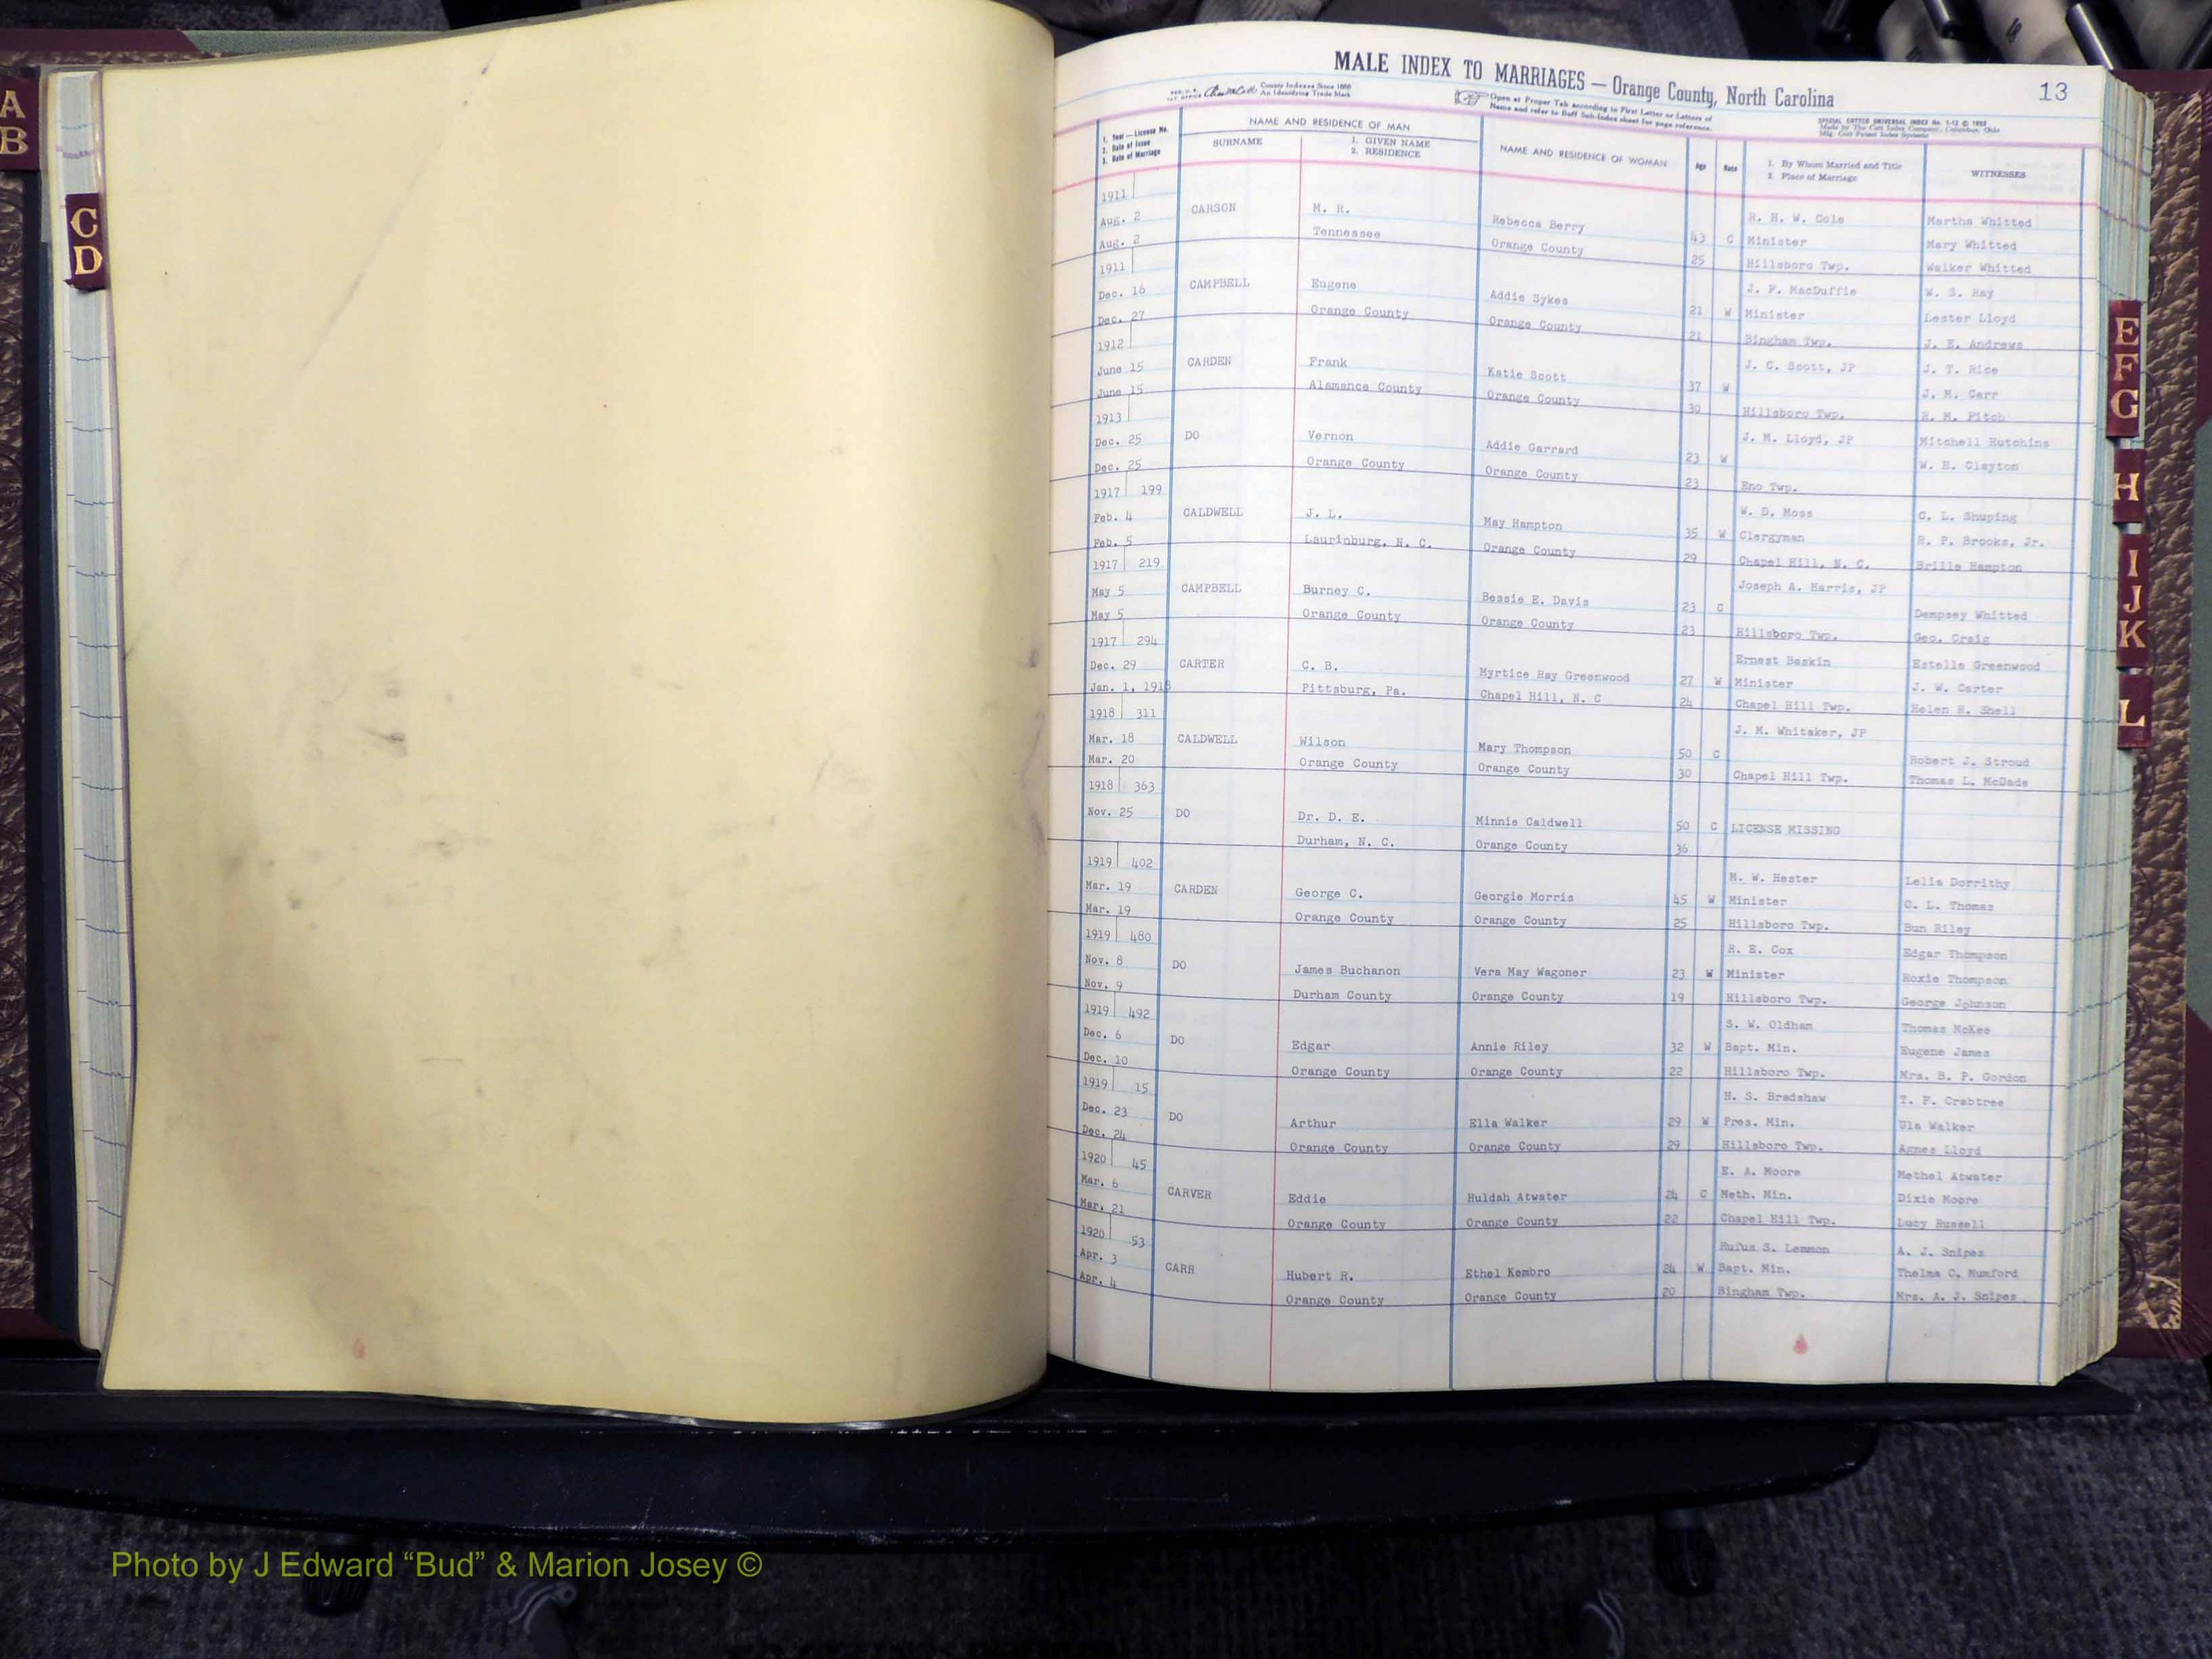 A
B
C
D
MALE INDEX TO MARRIAGES — Orange County, North Carolina
13
County Indexes Since 1888
An Identifying Trade Mark
Open at Proper Tab according to First Letter or Letters of
Name and refer to Buff Sub-Index sheet for page reference.
SPECIAL COTTER UNIVERSAL INDEX No. 1-12 ©
Made by The Cott Index Company, Columbus, Ohio
1. Year — License No.
2. Date of Issue
3. Date of Marriage
NAME AND RESIDENCE OF MAN
SURNAME
1. GIVEN NAME
2. RESIDENCE
NAME AND RESIDENCE OF WOMAN
Age
Race
1. By Whom Married and Title
2. Place of Marriage
WITNESSES
1911 R. H. W. Cole Martha Whitted
Aug. 2 CARSON M. R. Rebecca Berry 43 C Minister Mary Whitted
Aug. 2 Tennessee Orange County 25 Hillsboro Twp. Walker Whitted
1911 J. F. MacDuffie W. S. Ray
Dec. 16 CAMPBELL Eugene Addie Sykes 21 W Minister Lester Lloyd
Dec. 27 Orange County Orange County 21 Bingham Twp. J. E. Andrews
1912 J. C. Scott, JP J. T. Rice
June 15 CARDEN Frank Katie Scott 37 W J. M. Carr
June 15 Alamance County Orange County 30 Hillsboro Twp. R. M. Fitch
1913 J. M. Lloyd, JP Mitchell Hutchins
Dec. 25 DO Vernon Addie Garrard 23 W W. H. Clayton
Dec. 25 Orange County Orange County 23 Eno Twp.
1917 199 W. D. Moss C. L. Shuping
Feb. 4 CALDWELL J. L. May Hampton 35 W Clergyman R. P. Brooks, Jr.
Feb. 5 Laurinburg, N. C. Orange County 29 Chapel Hill, N. C. Brille Hampton
1917 219 Joseph A. Harris, JP
May 5 CAMPBELL Burney C. Bessie E. Davis 23 C Dempsey Whitted
May 5 Orange County Orange County 23 Hillsboro Twp. Geo. Craig
1917 294 Ernest Baskin Estelle Greenwood
Dec. 29 CARTER C. B. Myrtice Ray Greenwood 27 W Minister J. W. Carter
Jan. 1, 1918 Pittsburg, Pa. Chapel Hill, N. C 24 Chapel Hill Twp. Helen R. Shell
1918 311 J. M. Whitaker, JP
Mar. 18 CALDWELL Wilson Mary Thompson 50 C Robert J. Stroud
Mar. 20 Orange County Orange County 30 Chapel Hill Twp. Thomas L. McDade
1918 363
Nov. 25 DO Dr. D. E. Minnie Caldwell 50 C LICENSE MISSING
Durham, N. C. Orange County 36
1919 402 M. W. Hester Lelia Dorrithy
Mar. 19 CARDEN George C. Georgie Morris 45 W Minister O. L. Thomas
Mar. 19 Orange County Orange County 25 Hillsboro Twp. Bun Riley
1919 480 R. E. Cox Edgar Thompson
Nov. 8 DO James Buchanon Vera May Wagoner 23 W Minister Roxie Thompson
Nov. 9 Durham County Orange County 19 Hillsboro Twp. George Johnson
1919 492 S. W. Oldham Thomas McKee
Dec. 6 DO Edgar Annie Riley 32 W Bapt. Min. Eugene James
Dec. 10 Orange County Orange County 22 Hillsboro Twp. Mrs. B. P. Gordon
1919 15 H. S. Bradshaw T. F. Crabtree
Dec. 23 DO Arthur Ella Walker 29 W Pres. Min. Ula Walker
Dec. 24 Orange County Orange County 29 Hillsboro Twp. Agnes Lloyd
1920 45 E. A. Moore Methel Atwater
Mar. 6 CARVER Eddie Huldah Atwater 24 C Meth. Min. Dixie Moore
Mar. 21 Orange County Orange County 22 Chapel Hill Twp. Lucy Russell
1920 53 Rufus S. Lemmon A. J. Snipes
Apr. 3 CARR Hubert R. Ethel Kembro 24 W Bapt. Min. Thelma C. Mumford
Apr. 4 Orange County Orange County 20 Bingham Twp. Mrs. A. J. Snipes
E
F
G
H
I
J
K
L
Photo by J Edward “Bud” & Marion Josey ©